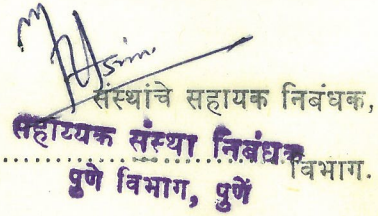 संस्थांचे सहाय्यक निबंधक,
सहाय्यक संस्था निबंधक
विभाग.
पुणे विभाग, पुणें